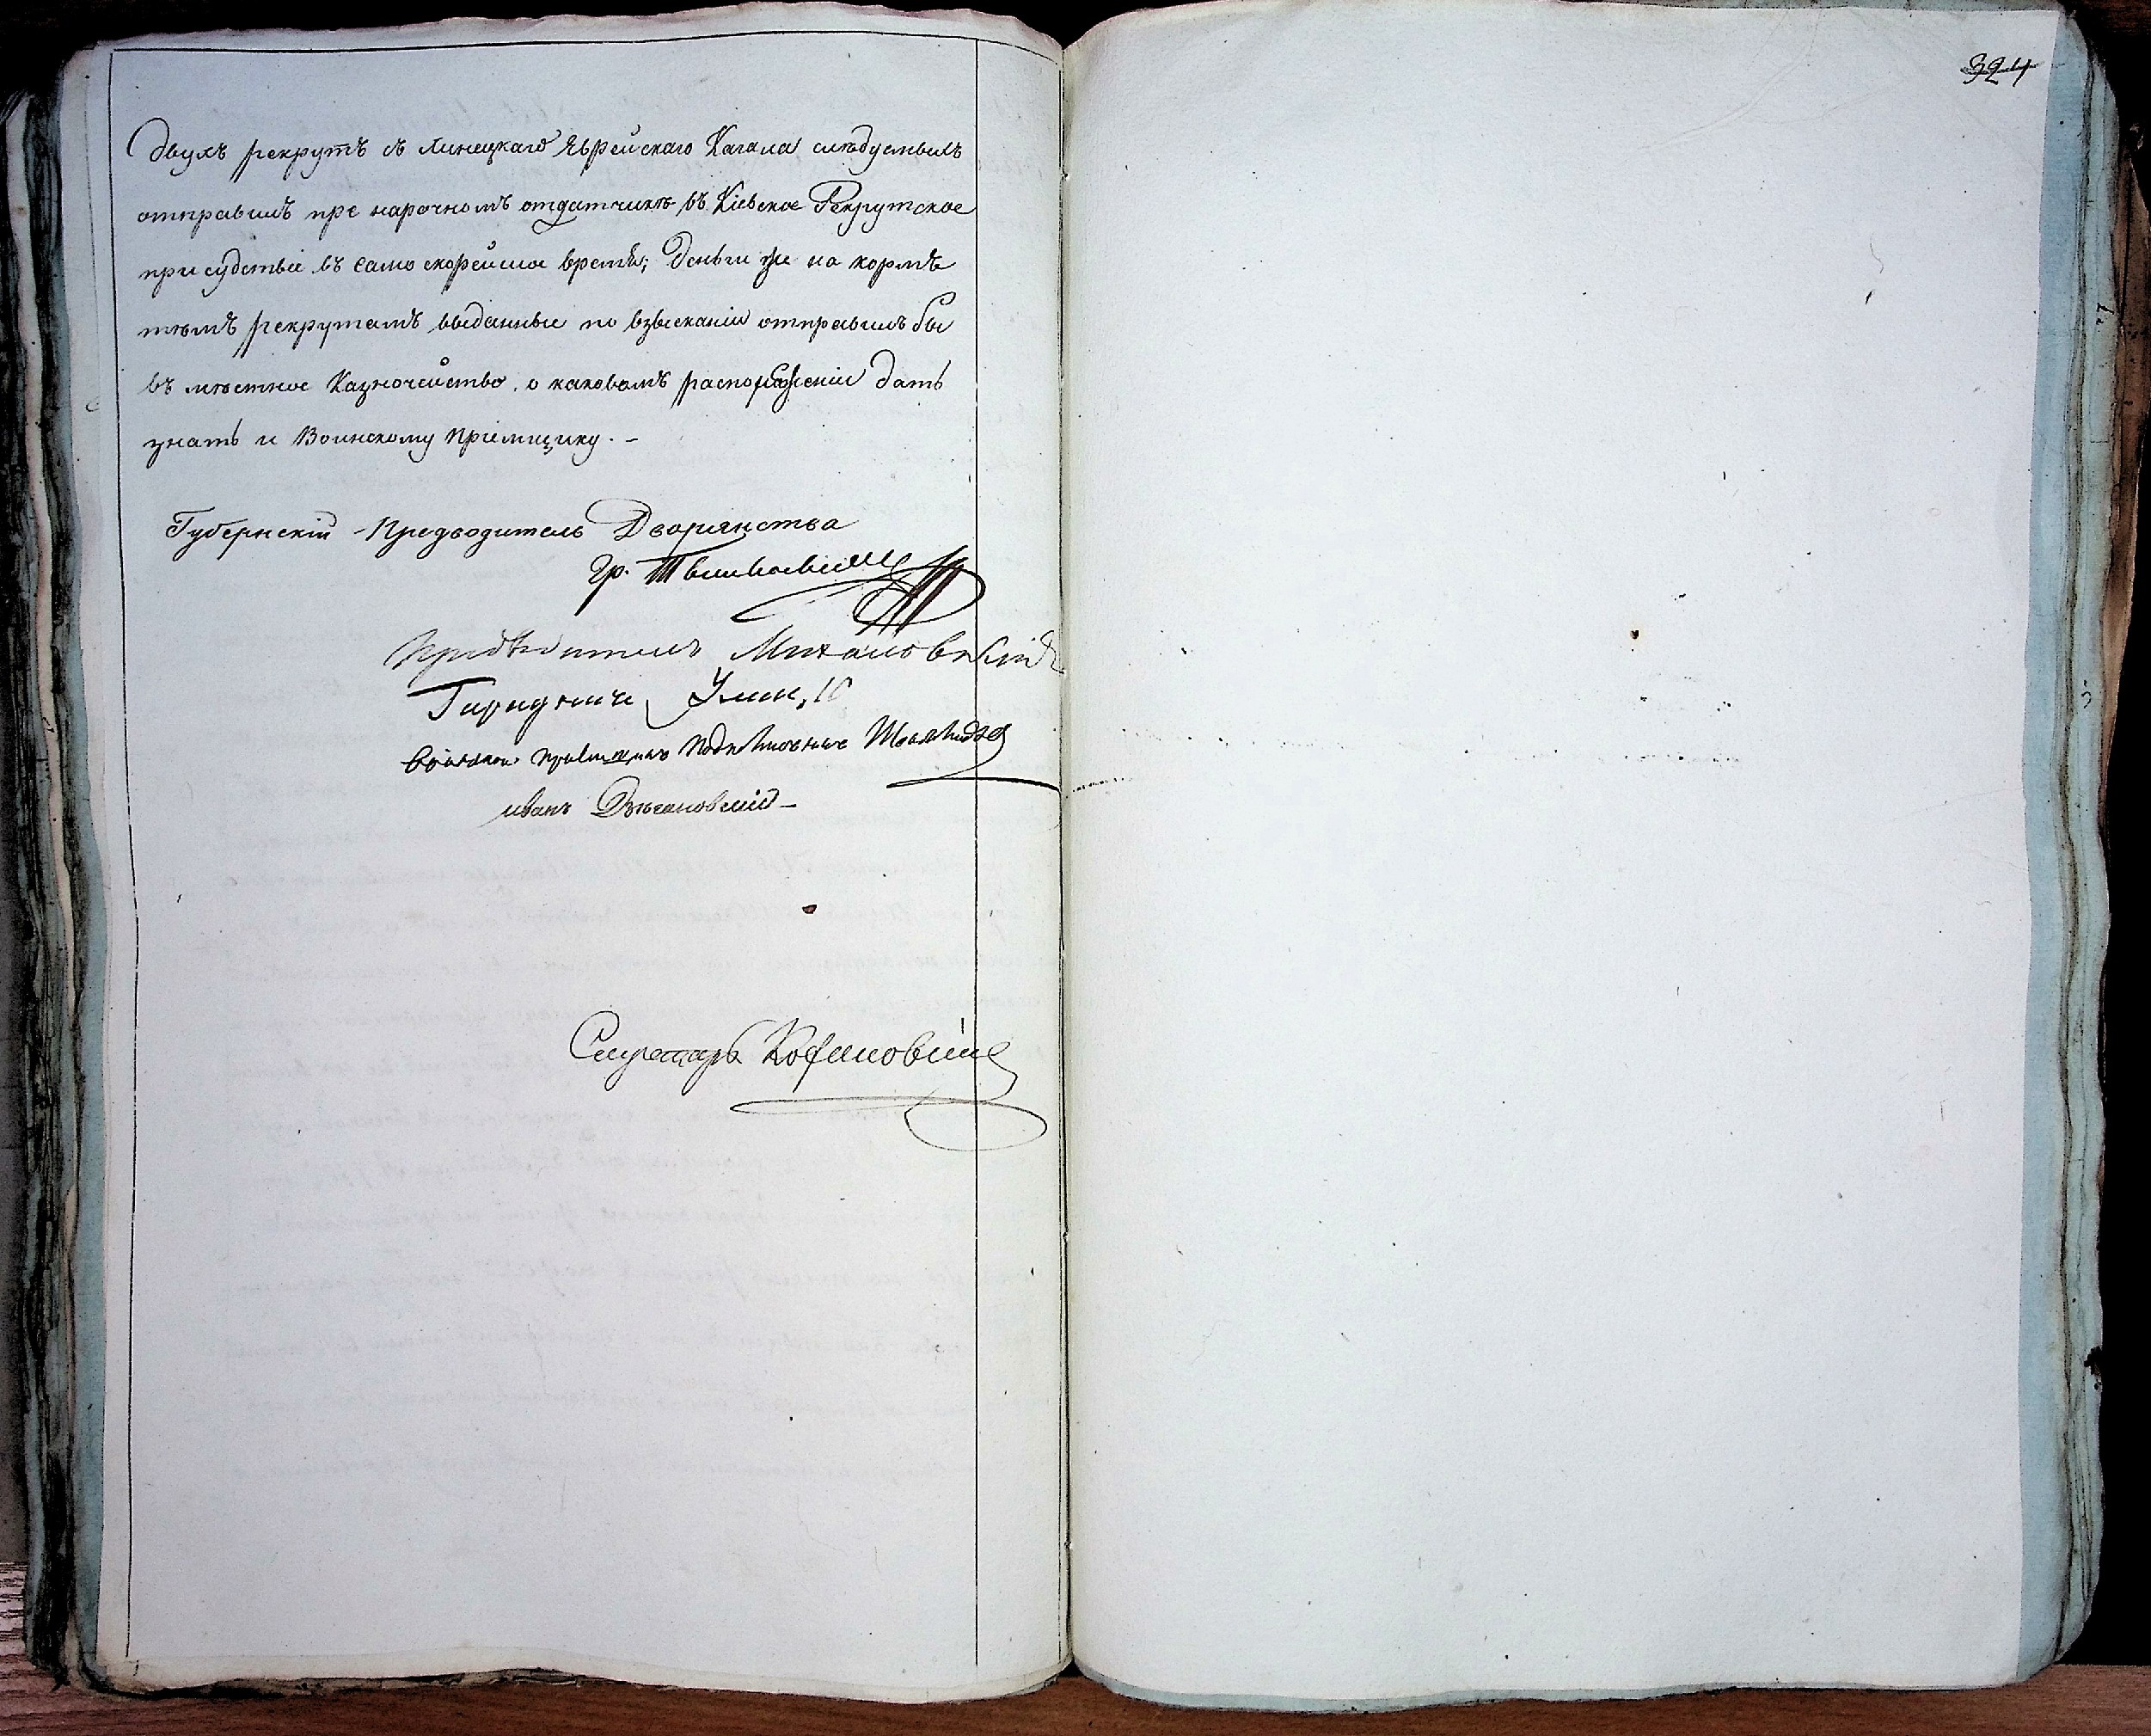 двухъ рекрутъ съ Линецкаго Еврейскаго Кагала слѣдуемыхъ
отправилъ пре нарочномъ отдатчикѣ въ Кіевское Рекрутское
присудствіе въ само скорейшое время; Деньги же на кормъ
тѣмъ рекрутамъ выданные по взысканіи отправилъ бы
въ мѣстное Казначейство, о каковомъ распоряженіи дать
знать и Воинскому пріемщику. –
Губернскій Предводитель Дворянства
Гр.
Предводитель
Воинской пріемщикъ Подполковникъ
иванъ
Секретарь
324